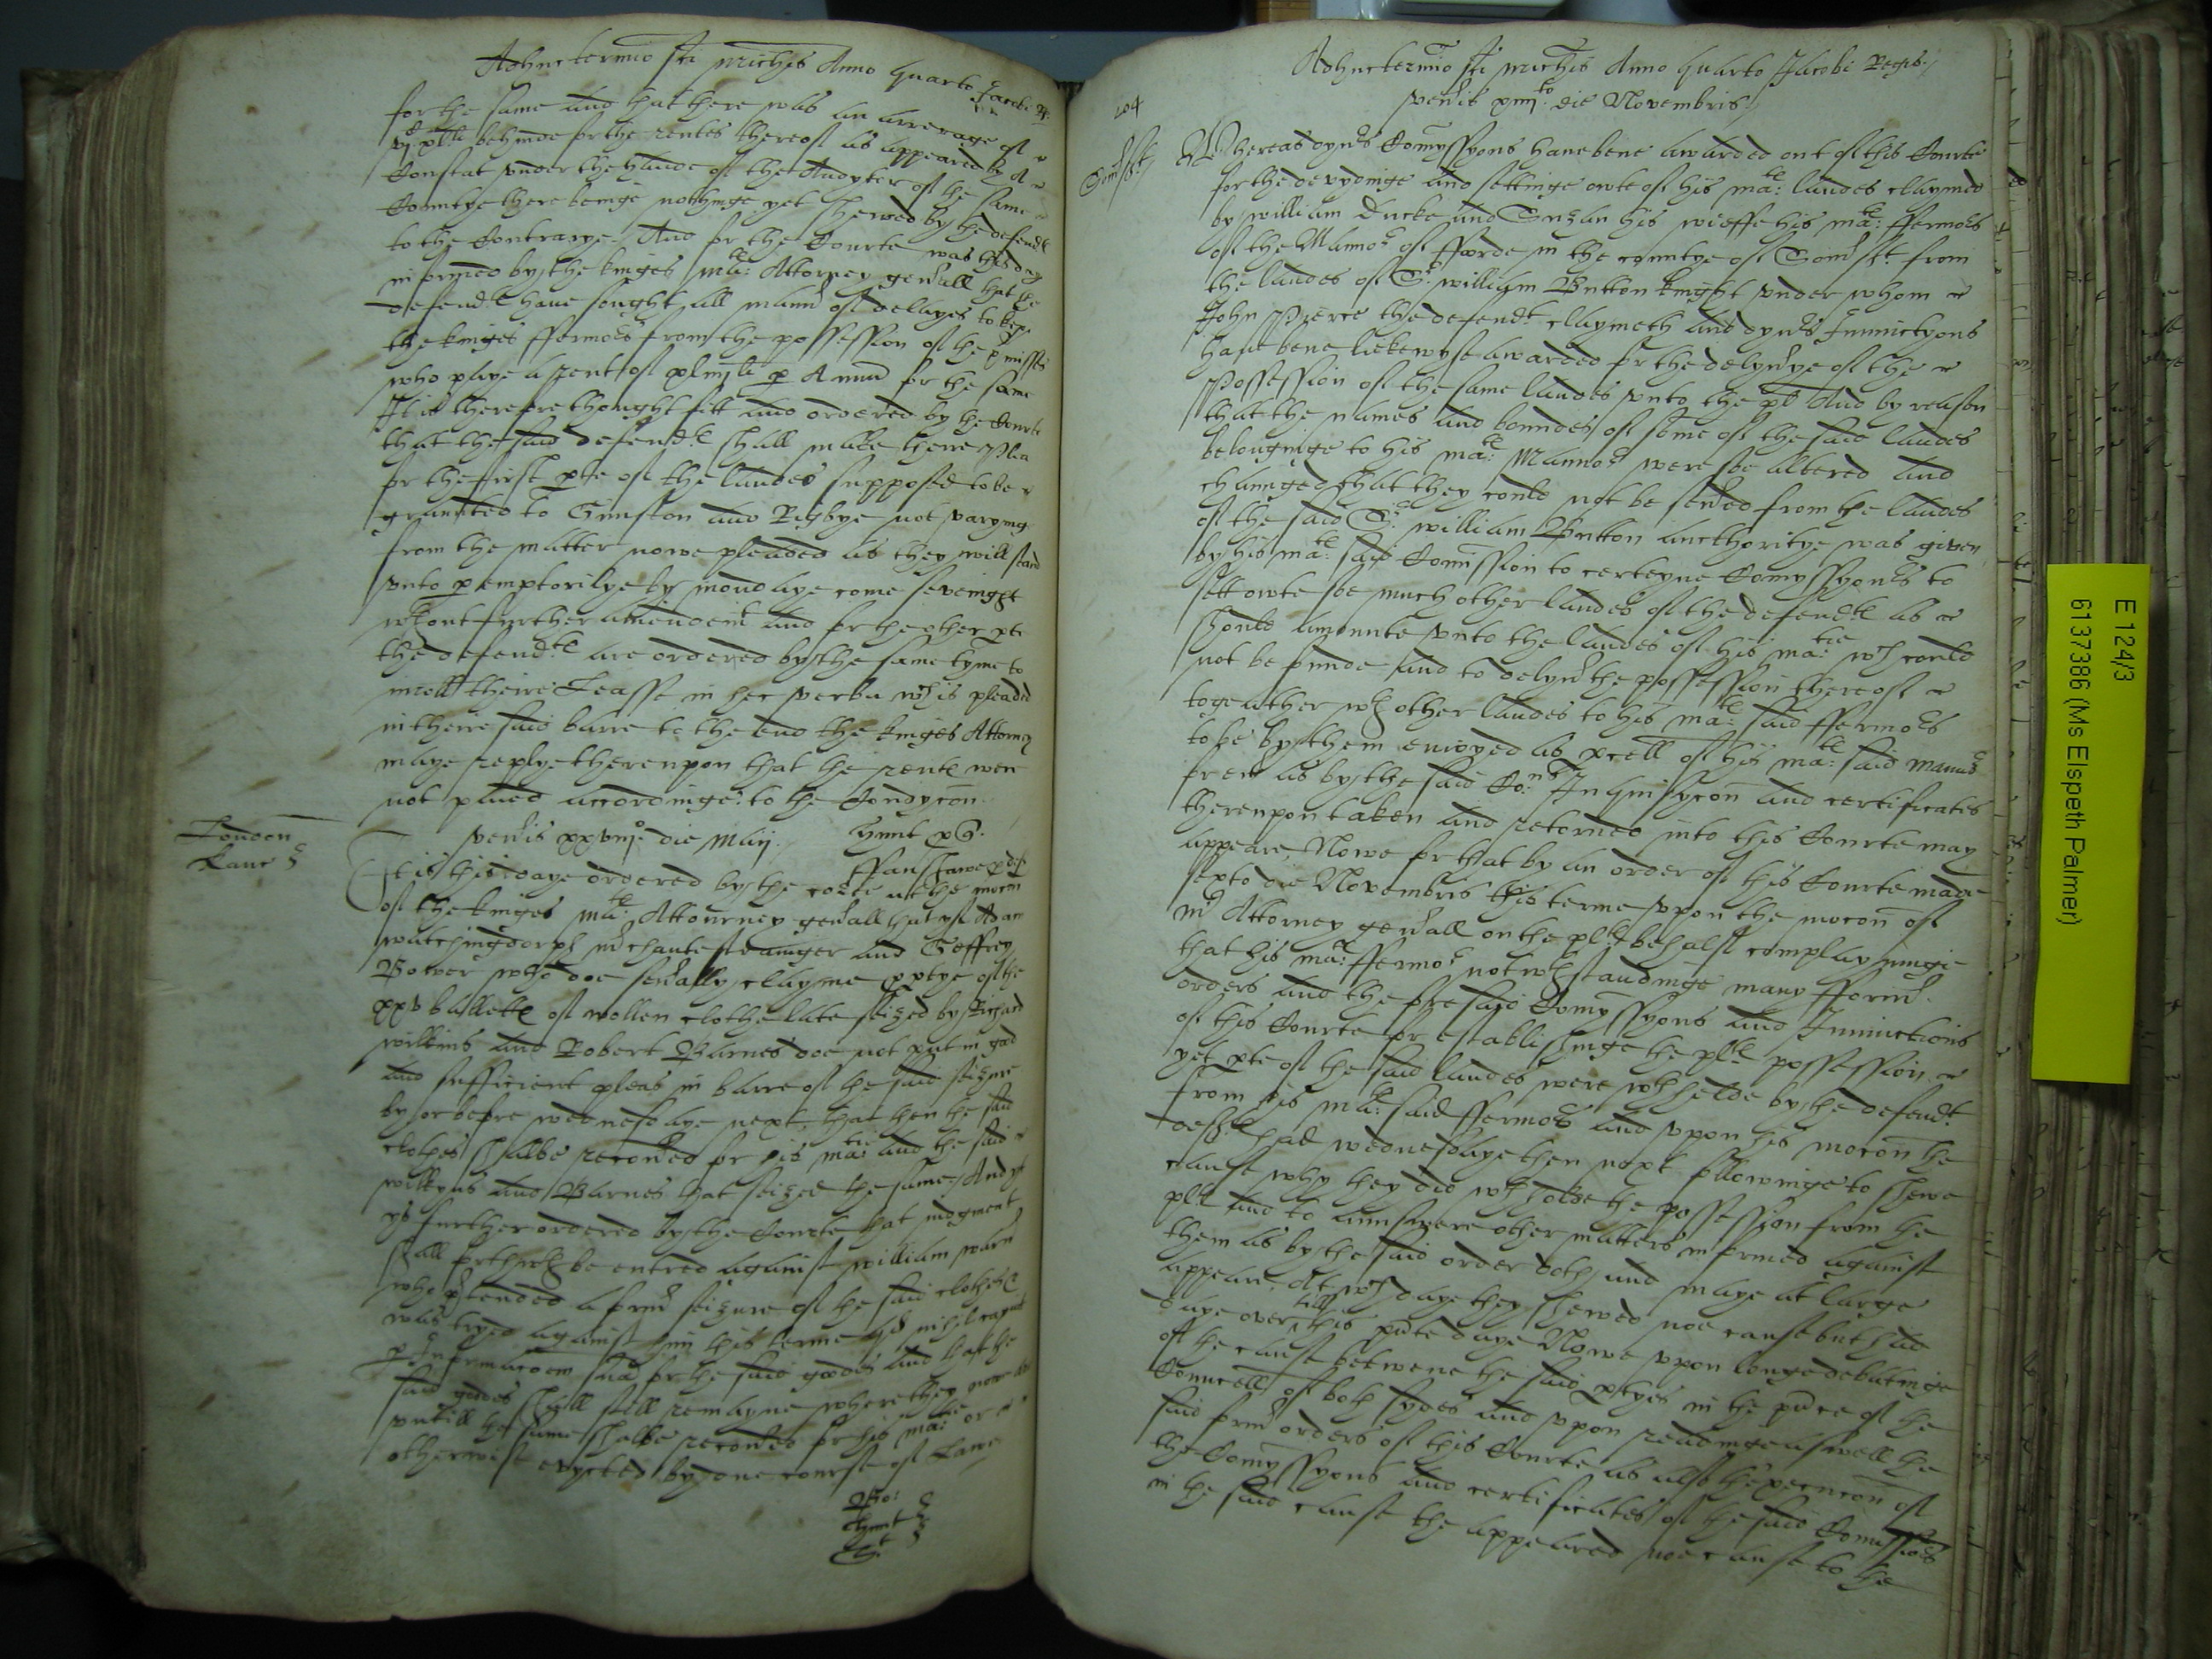 Adhuc termio sci Michis Anno quarto Jacobi R
for the same and that there was an arrerage of
behinde for the rentes thereof as appeared by a
Constat vnder the hande of the Audyter of the same
Countye there beinge nothinge yet shewed by the defendtes
to the Contrarye And for the Courte was this day
informed by the kinges Matie Attorney gen'all that the
defendtes have sought all mann' of delayes to kepe
the kinges ffermors from the possession of the p'misses
who paye a rent of xlviijli p Annu for the same
It is therefore thought fitt and ordered by the Courte
that the said defendtes shall make there Plea
for the first pte of the landes supposed to be
graunted to and Rigbye not varying
from the matter nowe pleaded as they will stand
vnto pemptorilye by mondaye come sevenight
wthout further amendemt and for the other pte
the defendtes are ordered by the same tyme to
inroll theire Leasse in hec verba wch is pleaded
in theire said barre to the end the kinges Attorney
maye replye thereupon that the rente were
not payed accordinge to the Condycon
ven'is xxviijo die Maij
London
Lane
ffanshawe p def
It is this daye ordered by the corte at the mocon
of the kinges Matie Attourney gen'all that yf Adam
m'chante stranger and Geffrey
Bower who doe sen'ally clayme pptye of the
xxv ballettes of wollen clothe late seized by Richard
Wilkins and Robert Barnes doe not put in good
and sufficient pleas in barre of the said seizure
by or before wednesdaye next, that then the said
clothes shalbe recou'ed for his Matie and the said
Wilkyns and Barnes that seized the same And yt
ys further ordered by the Courte that iudgment
shall forthwth be entred against william
who p'tended a form' seizure of the said clothes
was tryed against him this terme
p Informacoem sua for the said goodes and that the
said goodes shall still remayne where they now are
vntill the same shalbe recou'ed for his Matie or
otherwise evycted by due course of Lawe
Adhuc termio sci Michis Anno quarto Jacobi Regis
ven'is xiiijto die Novembris
204
Som'sst
Whereas dyu's Comyssyons haue bene awarded out of this Courte
for the devydinge and settinge owte of his Mates landes claymed
by william Ducke and Suzan his wieffe his Mates ffermors
of the Mannor of fforde in the countye of Som'sst from
the landes of Sr william Button knyght vnder whom
John Pierce the defendt claymeth and dyu's Iniunctyons
have bene lickewyse awarded for the delyu'ye of the
Possession of the same landes vnto the plt And by reason
that the names and boundes of some of the said landes
belonginge to his Mates Mannor were soe altered and
chaunged that they could not be seu'ed from the landes
of the said Sr william Button aucthoritye was given
by his Mates said Comission to certeyne Comyssyonrs to
sett owte soe much other landes of the defendtes as
should amounte vnto the landes of his Matie wch could
not be founde and to delyu' the possession thereof
togeather wth other landes to his Mates said ffermors
to be by them enioyed as pcell of his Mates said mannor
for eu' as by the said Comns Inquisycon and certificates
thereupon taken and retorned into this Courte may
appeare, Nowe for that by an order of this Courte made
sexto die Novembris this terme vpon the mocon of
Mr Attorney gen'all on the plts behalf complayninge
that his Mates ffermor notwthstandinge many fform'
orders and the foresaid Comyssyons and Iniunctions
of this Courte for establishinge the pltes possession
yet pte of the said landes were wthhelde by the defendt
from his Mates said ffermors and vpon his mocon the
deftes had wednesdaye then next followinge to shewe
cause why they did wthholde the possession from the
plt and to aunswere other matters informed against
them as by the said order doth and maye at large
appeare. At wch daye they shewed noe cause but had
daye over till this p'nte daye Nowe vpon longe debatinge
of the cause betwene the said ptyes in the p'nce of the
Councell of both sydes and vpon readinge aswell the
said form' orders of this Courte as also the execucon of
the Comyssyons and certificates of the said Comissions
in the said cause the appeared noe cause to the
E 124/3
6137386 (Ms Elspeth Palmer)